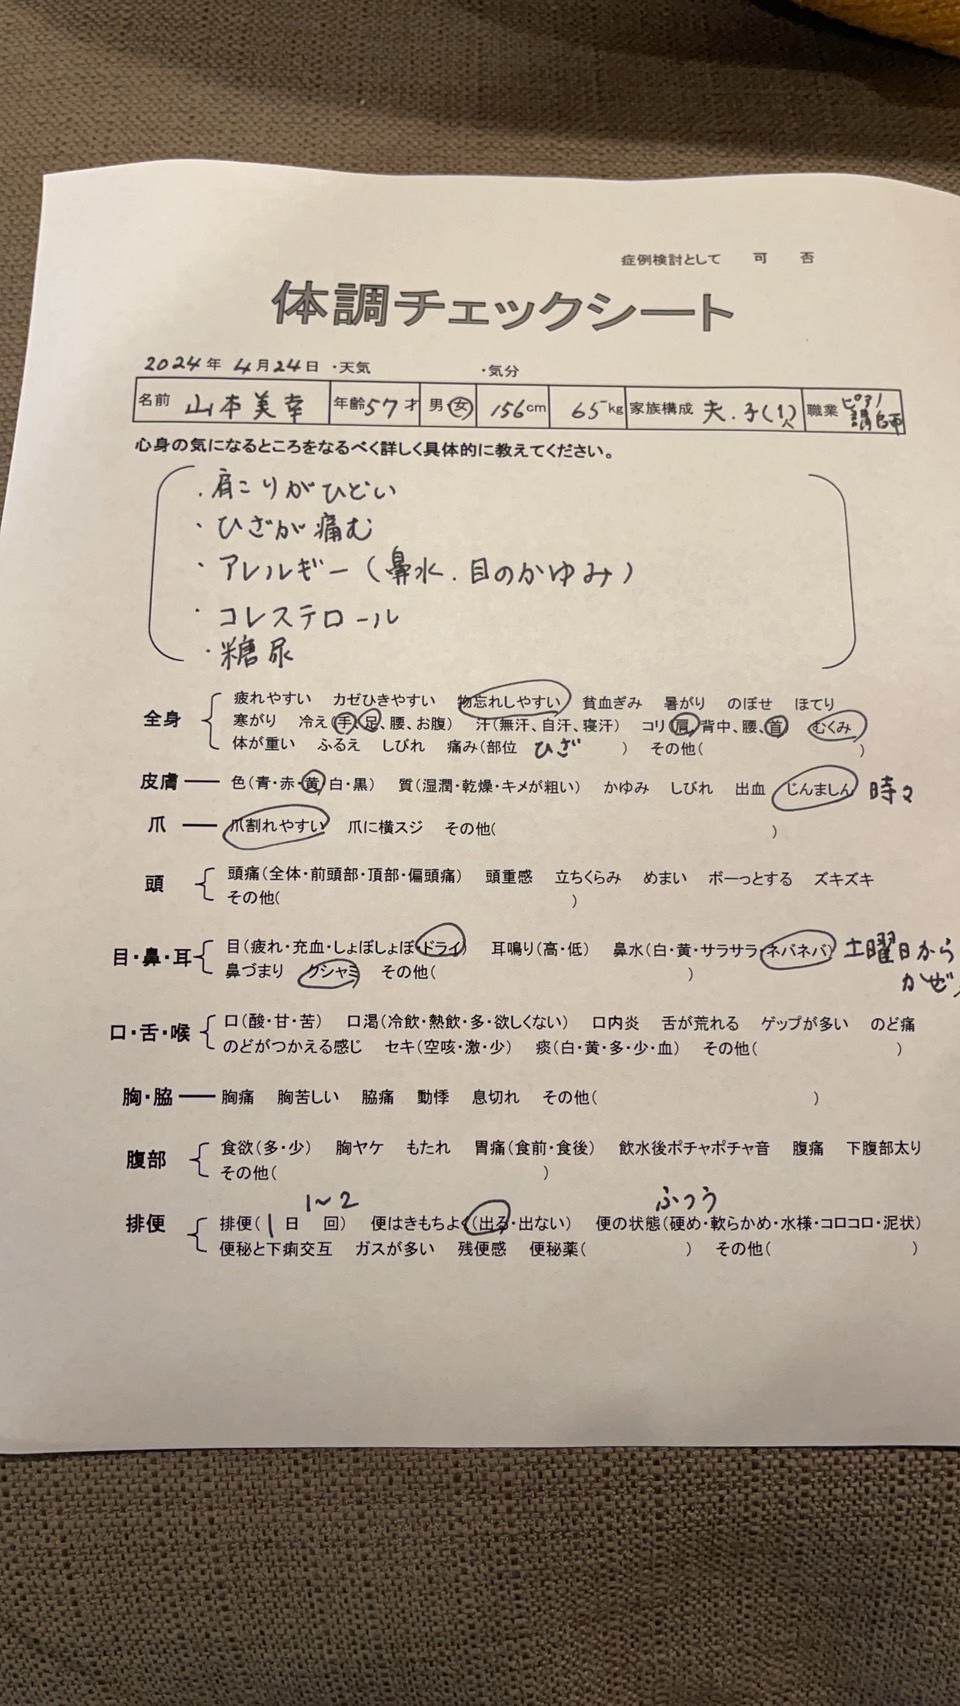 症例検討として　可　否
体調チェックシート
2024年 4月24日 ・天気　・気分
名前 山本美幸 年齢57才 男・女 156cm 65kg 家族構成 夫.子(1人) 職業 ピアノ講師
心身の気になるところをなるべく詳しく具体的に教えてください。
・肩こりがひどい
・ひざが痛む
・アレルギー(鼻水.目のかゆみ)
・コレステロール
・糖尿
全身 疲れやすい　カゼひきやすい　物忘れしやすい　貧血ぎみ　暑がり　のぼせ　ほてり
寒がり　冷え(手、足、腰、お腹)　汗(無汗、自汗、寝汗)　コリ(肩、背中、腰、首)　むくみ
体が重い　ふるえ　しびれ　痛み(部位 ひざ )　その他(　)
皮膚 色(青・赤・黄・白・黒)　質(湿潤・乾燥・キメが粗い)　かゆみ　しびれ　出血　じんましん 時々
爪 爪割れやすい　爪に横スジ　その他(　)
頭 頭痛(全体・前頭部・頂部・偏頭痛)　頭重感　立ちくらみ　めまい　ボーっとする　ズキズキ
その他(　)
目・鼻・耳 目(疲れ・充血・しょぼしょぼ・ドライ)　耳鳴り(高・低)　鼻水(白・黄・サラサラ・ネバネバ) 土曜日から
鼻づまり　クシャミ　その他(　) かぜ
口・舌・喉 口(酸・甘・苦)　口渇(冷飲・熱飲・多・欲しくない)　口内炎　舌が荒れる　ゲップが多い　のど痛
のどがつかえる感じ　セキ(空咳・激・少)　痰(白・黄・多・少・血)　その他(　)
胸・脇 胸痛　胸苦しい　脇痛　動悸　息切れ　その他(　)
腹部 食欲(多・少)　胸ヤケ　もたれ　胃痛(食前・食後)　飲水後ポチャポチャ音　腹痛　下腹部太り
その他(　)
排便 排便(1日 1〜2回)　便はきもちよく(出る・出ない)　便の状態(硬め・軟らかめ・水様・コロコロ・泥状) ふつう
便秘と下痢交互　ガスが多い　残便感　便秘薬(　)　その他(　)